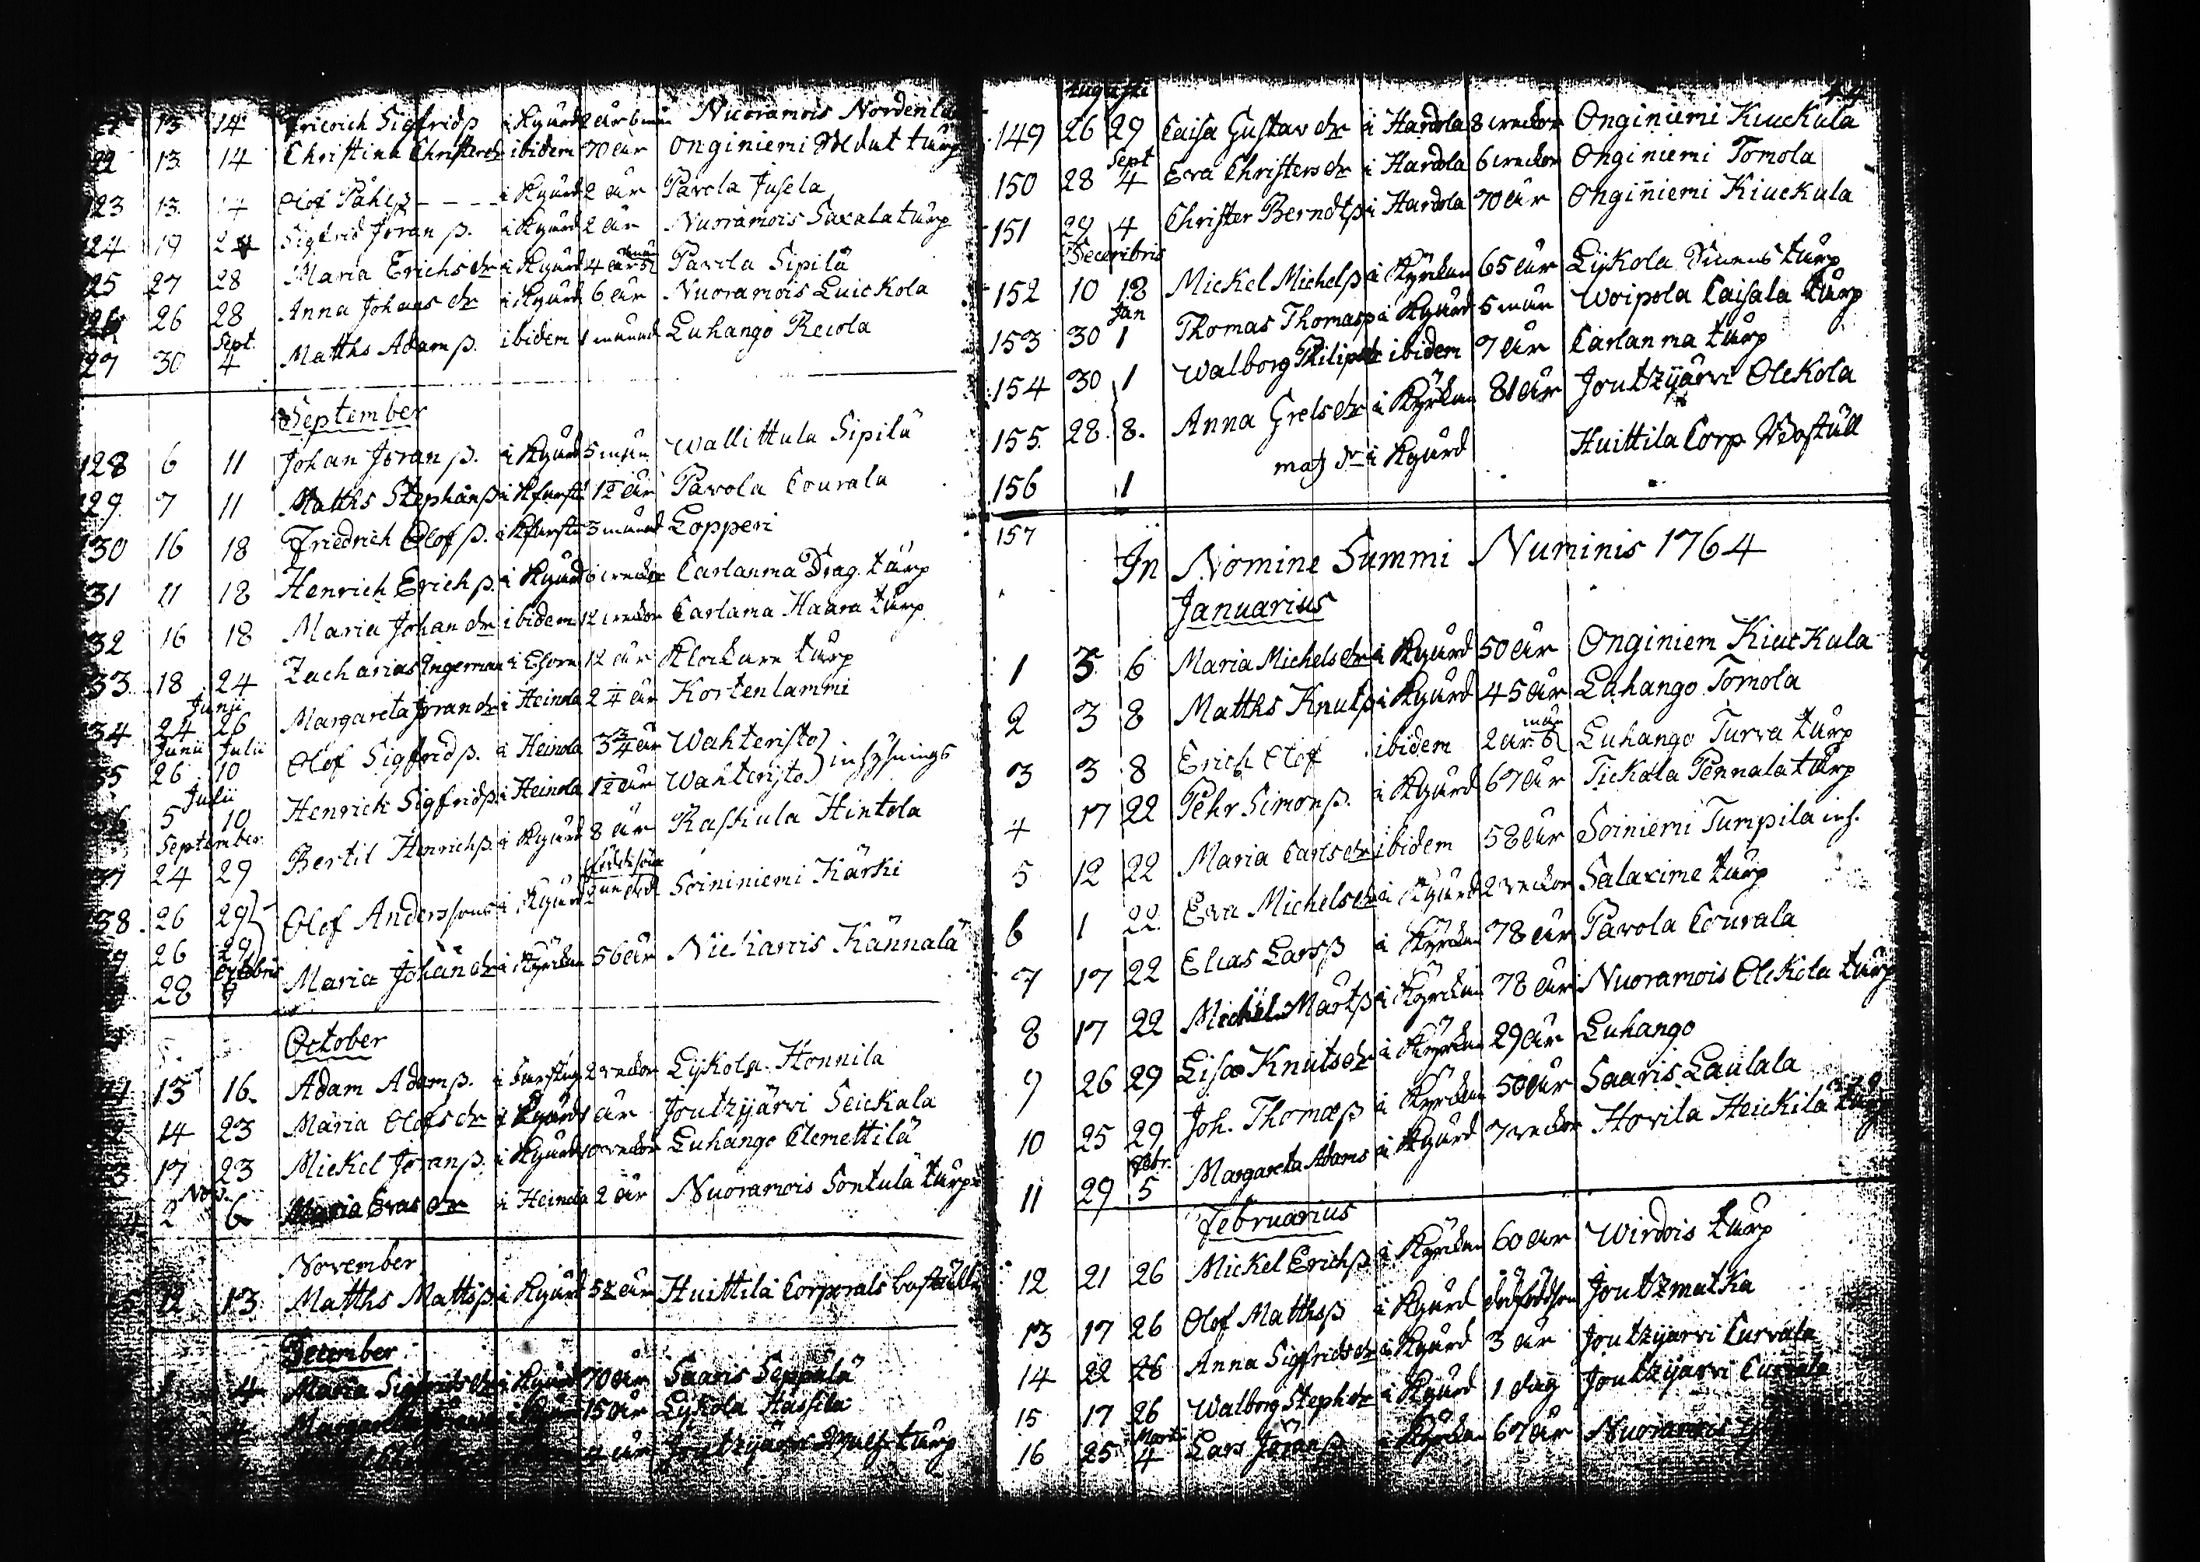 13 14 Friedrich Sigfridß i Kgård 2 år 6 mån Nuoramois Nordenlu
22 13 14 Christina Christerdr ibidem 70 år Onginiemi Soldat tårp
23 13 14 Olof Påhlß - - - - i Kgård 2 år Pavola Jusela
24 19 24 Sigfrid Jöranß. i Kgård 2 år Nuoramois Saxala tårp
25 27 28 Maria Erichsdr i Kgård 4 år Pavola Sipilä
26 26 28 Anna Johansdr i Kgård 6 år Nuoramois Luickola
Sept.
27 30 4 Matths Adamß. ibidem 1 månad Luhango Recola
September
128 6 11 Johan Jöranß. i Kgård 5 mån Wallittula Sipilä
29 7 11 Matths Stephanß i Kfarsti 1½ år Pavola Courala
30 16 18 Friedrich Olofß. i Kfarsti 3 månad Lopperi
31 11 18 Henrich Erichß. i Kgård 6 weckor Carlanma Drag. tårp
32 16 18 Maria Johandr ibidem 12 weckor Carlama Haara tårp
33 18 24 Zacharias Ingeman i Esorn 12 år Klockare tårp
Junii
34 24 26 Margareta Jörandr i Heinola 2¼ år Kortenlammi
Junii Julii
35 26 10 Olof Sigfridß. i Heinola 3¾ år Wahteristo
Julii
5 10 Henrich Sigfridß i Heinola 1½ år Wahteristo } inhysnings
September
24 29 Bertil Henrichß. i Kgård 8 år Rastiula Hintola
38. 26 29 Olof Anderssons i Kgård 2ne dödfödde söner Soininiemi Kärki
26 29
Octobris
28 Maria Johandr i Kyrckan 56 år Nickaris Kännalä
October
13 16. Adam Adamß. 2 weckor Lykola Honnila
14 23 Maria Olofsdr i Kgård 1 år Joutzijärvi Seickala
17 23 Mickel Jöranß. i Kgård 10 weckor Luhango Clemettilä
Nov.
2 6 Maria Evasdr i Heinola 2 år Nuoramois Sontula tårp
November
12 13 Matths Matthsß i Kgård 52 år Huittila Corporals boställe
December
4 Maria Sigfridsdr i Kgård 70 år Saaris Seppälä
4 15 år Lykola Hassila
4 år Joutzijärvi tårp
Augusti
149 26 29 Caisa Gustavdr i Hartola 8 weckor Onginiemi Kiuckula
Sept
150 28 4 Eva Christersdr i Hartola 6 weckor Onginiemi Tomola
151 29 4 Christer Berndtß i Hartola 70 år Onginiemi Kiuckula
Decembris
152 10 18 Mickel Michelß i Kyrckan 65 år Lykola tårp
Jan
153 30 1 Thomas Thomasß i Kgård 5 mån Woipola Caisala tårp
154 30 1 Walborg Philipsdr ibidem 7 år Carlanma tårp
155. 28. 8. Anna Grelsdr i Kyrckan 81 år Joutzijärvi Olckola
156 1 matz dr i Kgård Huittila Corp. Boställ
157
In Nomine Summi Numinis 1764
Januarius
1 3 6 Maria Michelsdr i Kgård 50 år Onginiem Kiuckula
2 3 8 Matths Knutß i Kgård 45 år Luhango Tomola
3 3 8 Erich Olof ibidem 2 år 6 mån Luhango Turva tårp
4 17 22 Pehr Simonß. i Kgård 67 år Tickala Pennala tårp
5 12 22 Maria Carlsdr ibidem 58 år Soiniemi Tumpila inh.
6 1 22 Eva Michelsdr i Kgård 2 weckor Salaxime tårp
7 17 22 Elias Larsß i Kyrckan 78 år Pavola Courala
8 17 22 Michel Mårtß i Kyrckan 78 år Nuoramois Olckola tårp
9 26 29 Lisa Knutsdr i Kyrckan 29 år Luhango
10 25 29 Joh. Thomæß i Kyrckan 50 år Saaris Laulala
Febr.
11 29 5 Margareta Adams i Kgård 7 weckor Hovila Heickilä tårp
Februarius
12 21 26 Mickel Erichß i Kyrckan 60 år Wirdois tårp
13 17 26 Olof Matthsß i Kgård dödfödd son Joutzmatka
14 22 26 Anna Sigfridsdr i Kgård 3 år Joutzijärvi Curvala
15 17 26 Walborg Stephdr i Kgård 1 dag Joutzijärvi Curvala
Martii
16 25 4 Lars Jöranß i Kyrckan 67 år Nuoramois